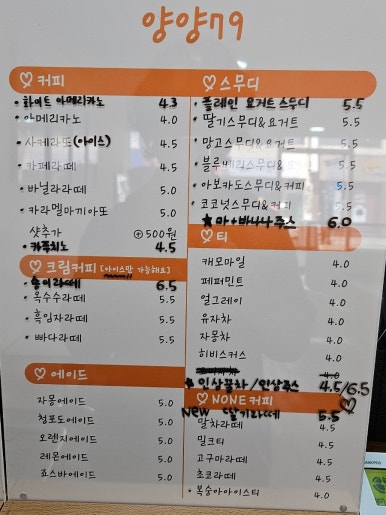 양양79
커피
• 화이트 아메리카노 4.3
• 아메리카노 4.0
• 사케라또(아이스) 4.5
• 카페라떼 4.5
• 바닐라라떼 5.0
• 카라멜마끼아또 5.0
샷추가 ⊕500원
• 카푸치노 4.5
크림커피 [아이스만 가능해요]
• 송이라떼 6.5
• 옥수수라떼 5.5
• 흑임자라떼 5.5
• 빠다라떼 5.5
에이드
자몽에이드 5.0
청포도에이드 5.0
오렌지에이드 5.0
레몬에이드 5.0
죠스바에이드 5.0
스무디
• 플레인 요거트 스무디 5.5
• 딸기스무디&요거트 5.5
• 망고스무디&요거트 5.5
• 블루베리스무디&요거트 5.5
• 아보카도스무디&커피 5.5
• 코코넛스무디&커피 5.5
★마+바나나주스 6.0
티
캐모마일 4.0
페퍼민트 4.0
얼그레이 4.0
유자차 4.0
자몽차 4.0
히비스커스 4.0
4.0
★ 인삼꿀차/인삼주스 4.5/6.5
NONE커피
NEW 딸기라떼 5.5
말차라떼 4.5
밀크티 4.5
고구마라떼 4.5
초코라떼 4.5
• 복숭아아이스티 4.0